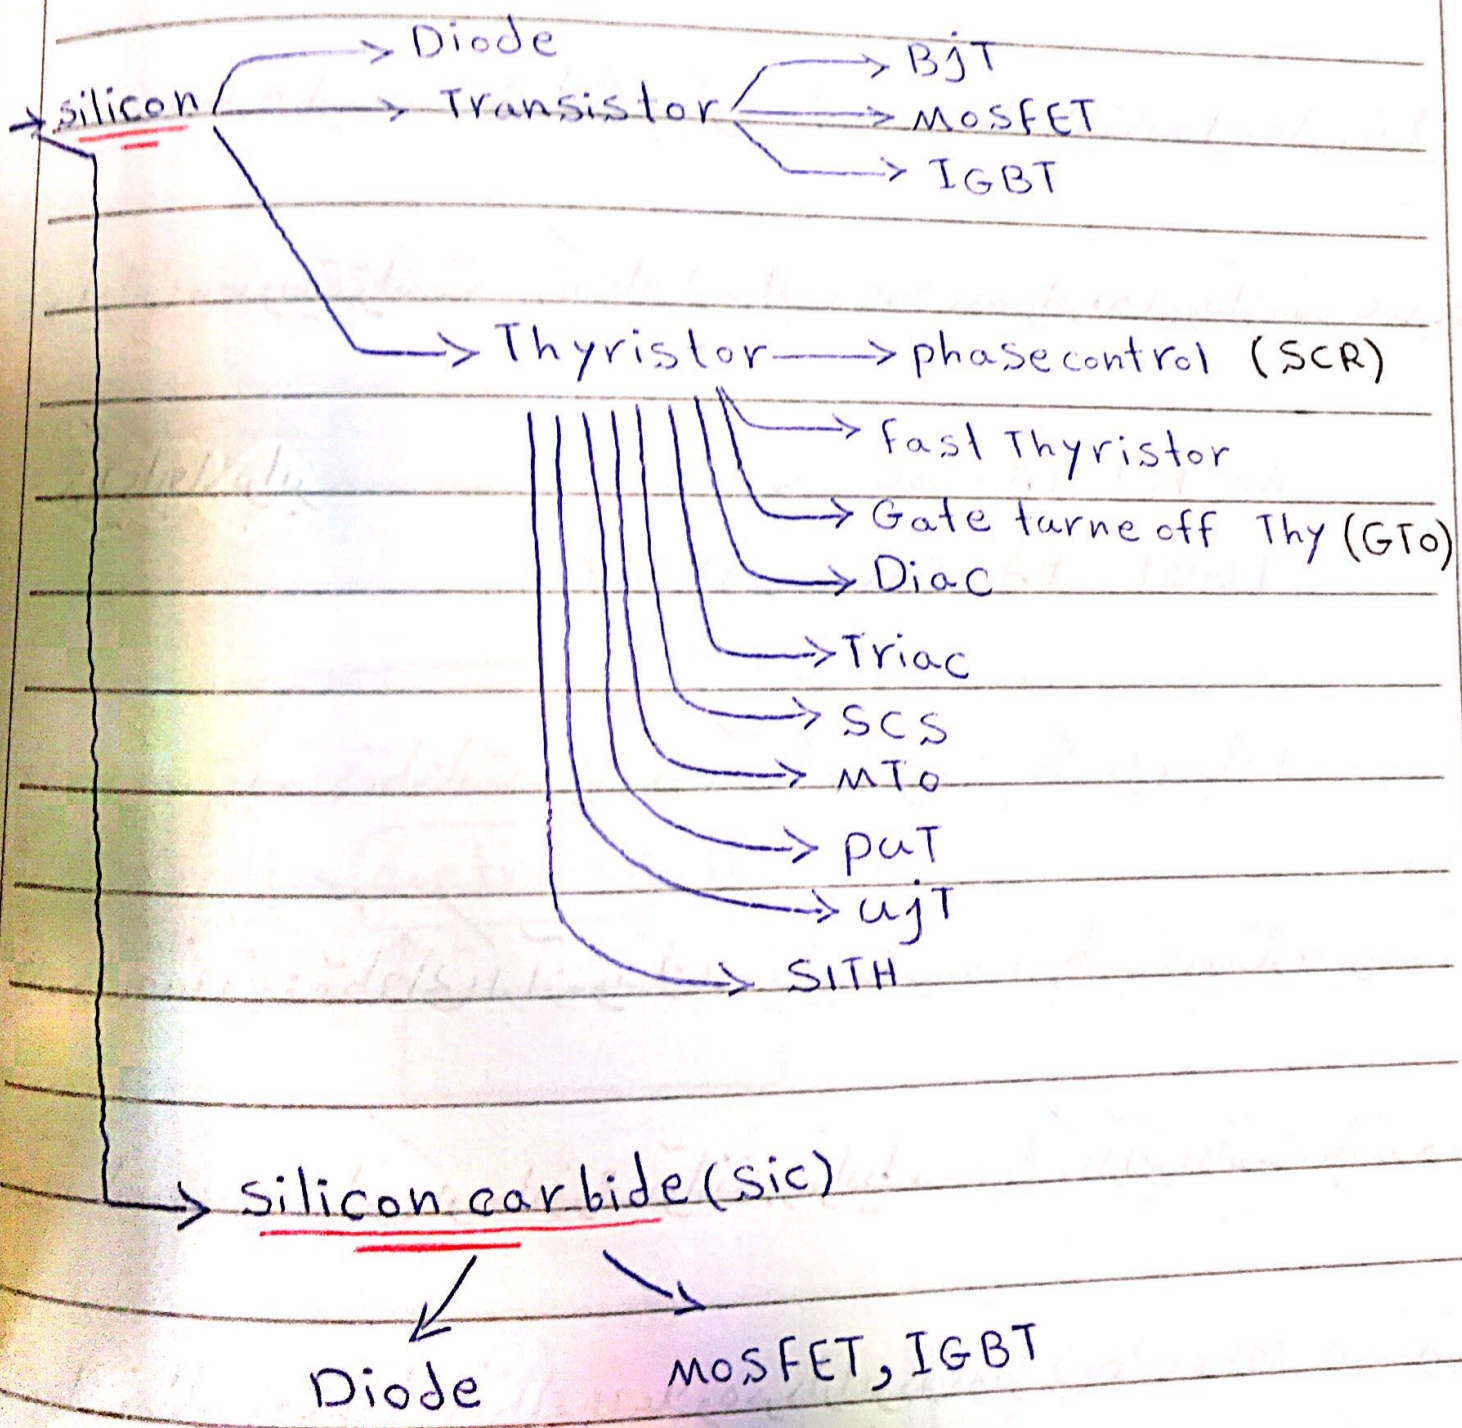 Diode
silicon Transistor
BjT
MOSFET
IGBT
Thyristor phase control (SCR)
Fast Thyristor
Gate turne off Thy (GTO)
Diac
Triac
SCS
MTO
puT
ujT
SITH
silicon carbide (sic)
Diode
MOSFET, IGBT